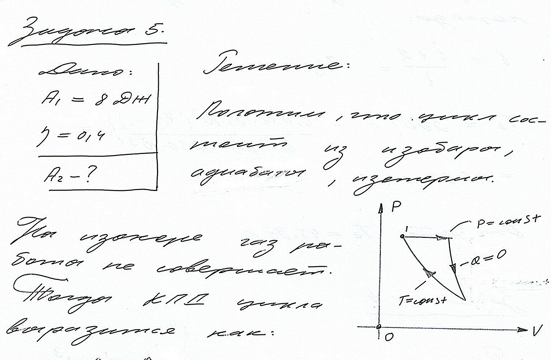 Задача 5.
Дано:
A₁ = 8 Дж
η = 0,4
A₂ - ?
Решение:
Положим, что цикл сос-
тоит из изобары,
адиабаты, изотермы.
На изохоре газ ра-
боты не совершает.
Тогда КПД цикла
выразится как:
P
1
P=const
Q=0
T=const
0
V